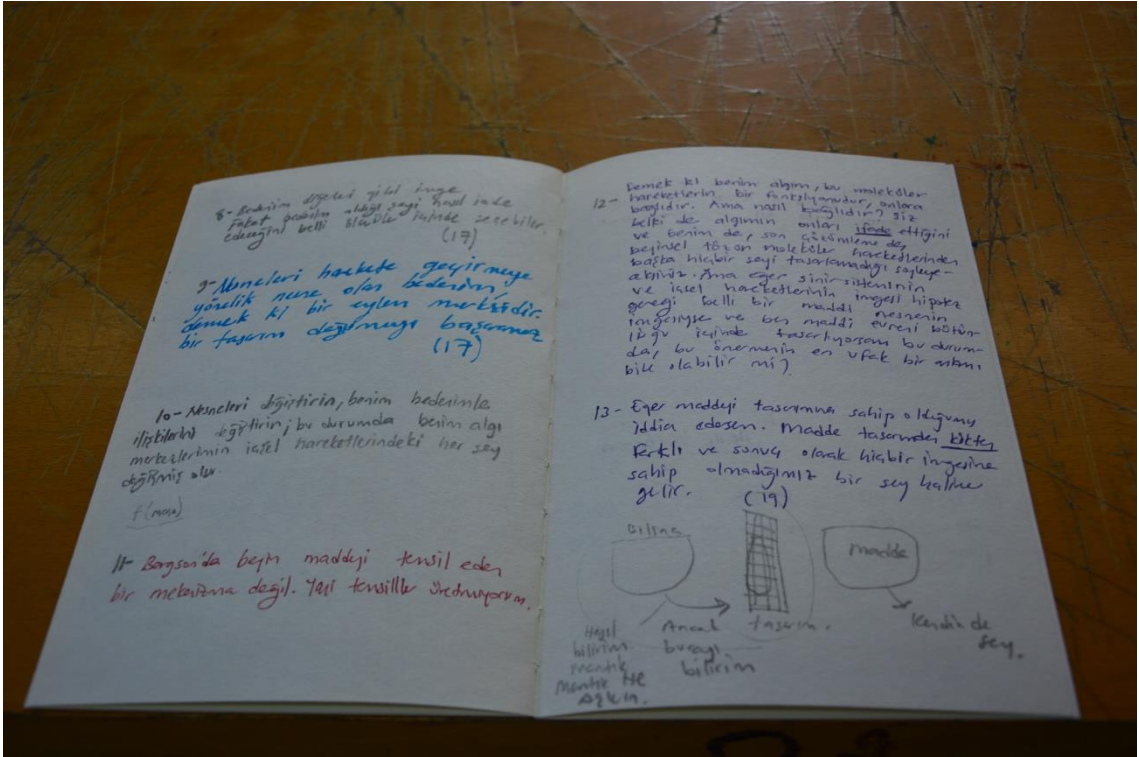 8- Bedenim diğerleri gibi imge
Fakat bedenim aldığı şeyi nasıl iade
edeceğini belli ölçüler içinde seçebilir.
(17)
9- Nesneleri harekete geçirmeye
yönelik nesne olan bedenim,
demek ki bir eylem merkezidir.
bir tasarım doğurmayı başaramaz
(17)
10- Nesneleri değiştirin, benim bedenimle
ilişkilerini değiştirin, bu durumda benim algı
merkezlerimin içsel hareketlerindeki her şey
değişmiş olur.
11- Bergson'da beyin maddeyi temsil eden
bir mekanizma değil. Yani temsiller üretmiyorum.
12- Demek ki benim algım, bu moleküler
hareketlerin bir fonksiyonudur, onlara
bağlıdır. Ama nasıl bağlıdır? Siz
belki de algımın onları ifade ettiğini
ve benim de, son çözümlemede,
beyinsel tözün moleküler hareketlerinden
başka hiçbir şeyi tasarlamadığı söyleye-
ceksiniz. Ama eğer sinir sisteminin
ve içsel hareketlerinin imgesi hipotez
gereği belli bir maddi nesnenin
imgesiyse ve ben maddi evreni bütün-
lüğü içinde tasarlıyorsam bu durum-
da, bu önermenin en ufak bir anlamı
bile olabilir mi?
13- Eğer maddeyi tasarımına sahip olduğumu
iddia edersem. Madde tasarımdan kökten
farklı ve sonuç olarak hiçbir imgesine
sahip olmadığımız bir şey haline
gelir. (19)
Bilinç
madde
Ancak tasarım.
burayı
bilirim
Kendinde
şey.
Hegel
bilirim.
mantık
Mantık ile
Aşkın.